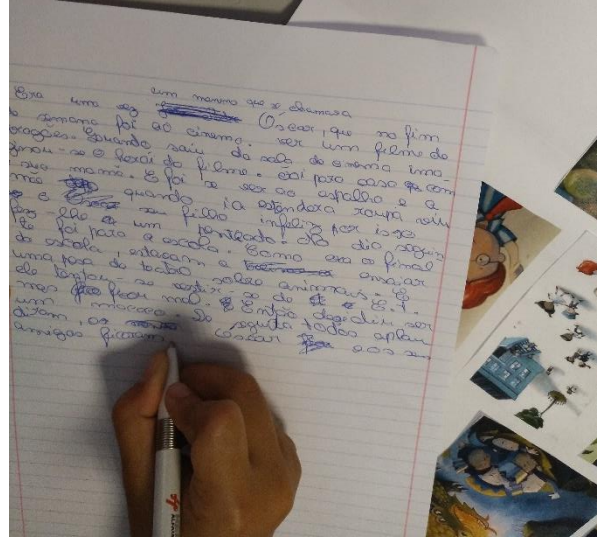 um menino que se chamava
Era uma vez Óscar, que no fim
de semana foi ao cinema. ver um filme de
dragões. Quando saiu da sala do cinema ima
ginou-se o herói do filme. Foi para casa com
a sua mamã. E foi se ver ao espelho e a
mãe quando ia estender a roupa viu
o seu filho infeliz por isso
fez-lhe um penteado. No dia seguin
te foi para a escola. Como era o final
da escola, estavam a ensaiar
uma peça de teatro sobre animais. E
ele tentou-se vestir-se de E.T.
mas ficou mal. Então decidiu ser
um macaco. De seguida todos aplau
diram, os
amigos ficaram Óscar e os seu